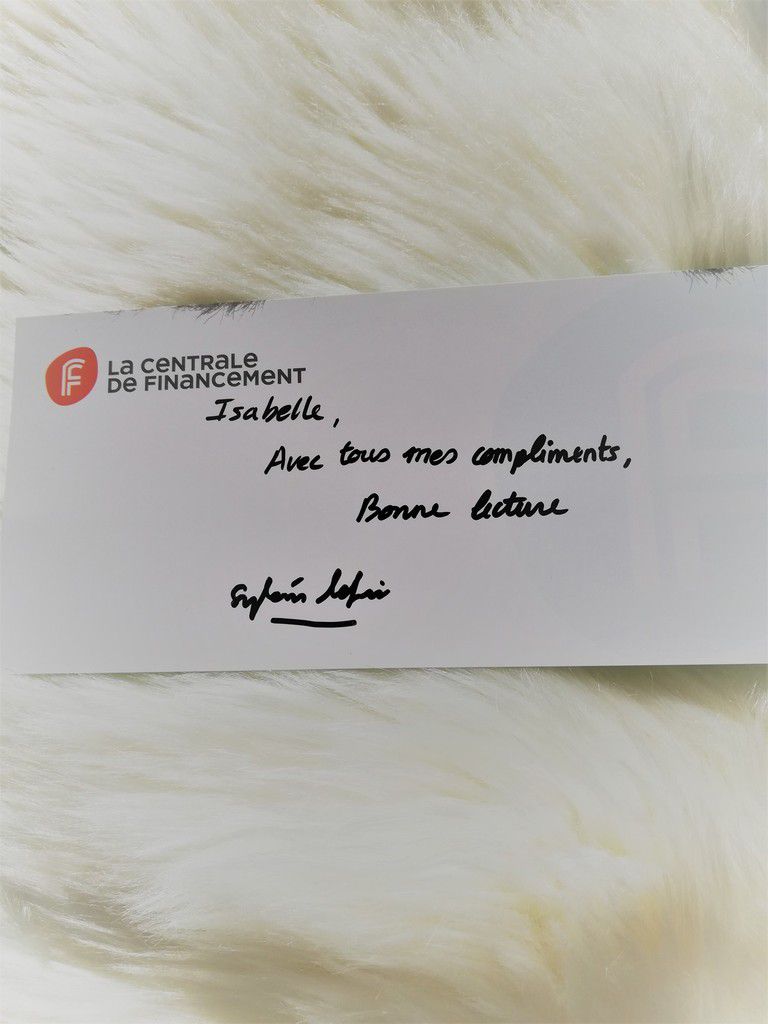 La Centrale
de Financement
Isabelle,
Avec tous mes compliments,
Bonne lecture
Sylvain